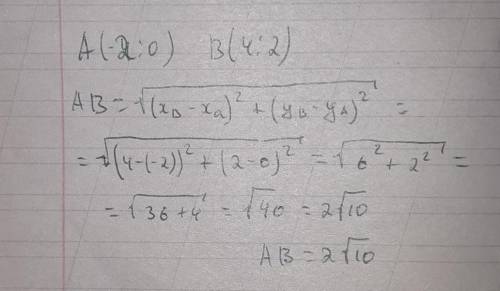 A(-2;0) B(4;2)
AB = √((x_B - x_a)² + (y_B - y_A)²) =
= √((4-(-2))² + (2-0)²) = √(6² + 2²) =
= √(36+4) = √40 = 2√10
AB = 2√10